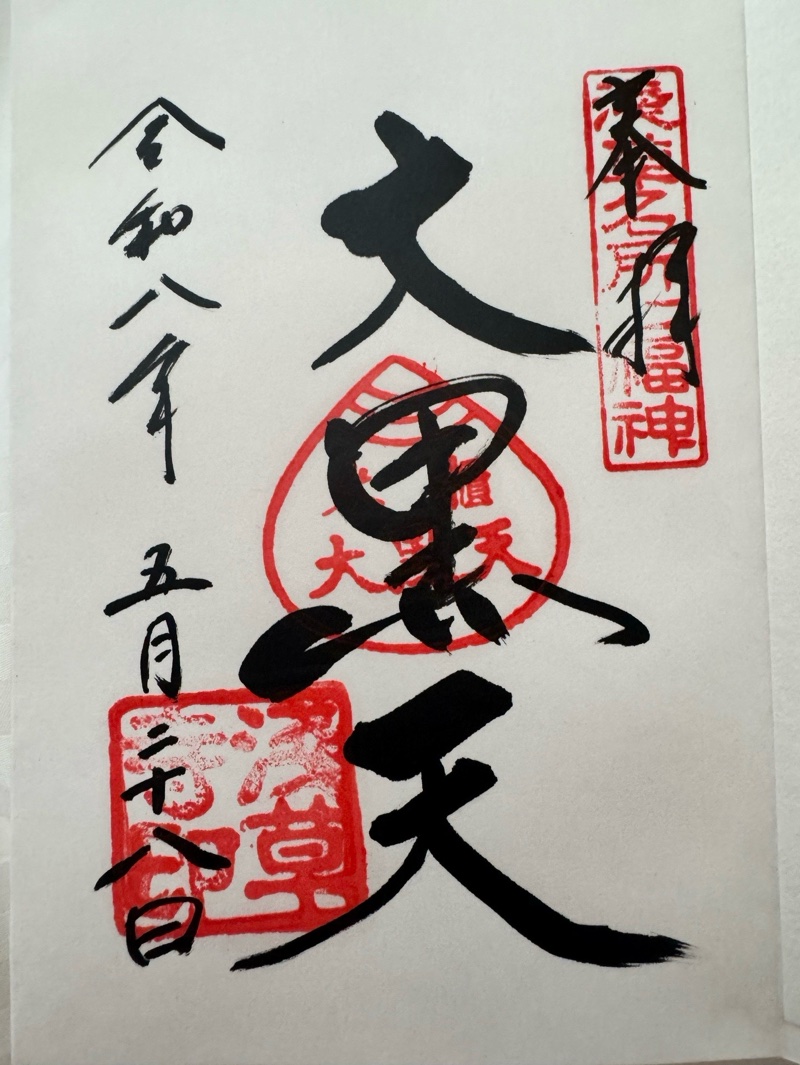 奉拝
淺草名所七福神
大黒天
米櫃
大黒天
令和八年 五月二十八日
淺草
寺印